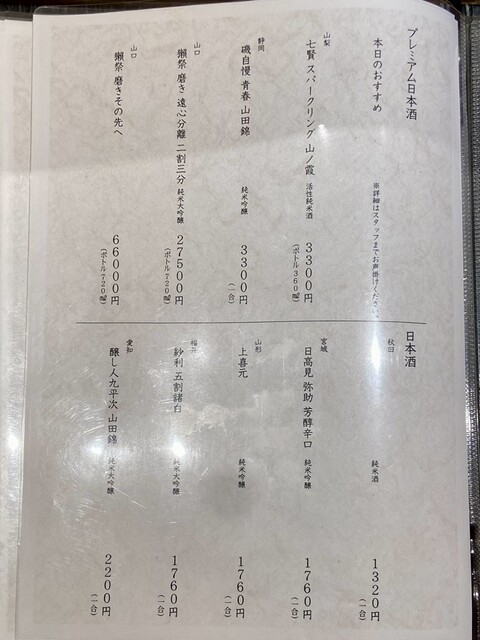 プレミアム日本酒
本日のおすすめ ※詳細はスタッフまでお声掛けください。
山梨
七賢 スパークリング 山ノ霞 活性純米酒 3300円 (ボトル360㎖)
静岡
磯自慢 青春 山田錦 純米吟醸 3300円 (一合)
山口
獺祭 磨き 遠心分離 二割三分 純米大吟醸 27500円 (ボトル720㎖)
山口
獺祭 磨きその先へ 66000円 (ボトル720㎖)
日本酒
秋田
純米酒 1320円 (一合)
宮城
日高見 弥助 芳醇辛口 純米吟醸 1760円 (一合)
山形
上喜元 純米吟醸 1760円 (一合)
福井
紗利 五割諸白 純米大吟醸 1760円 (一合)
愛知
醸し人九平次 山田錦 純米大吟醸 2200円 (一合)